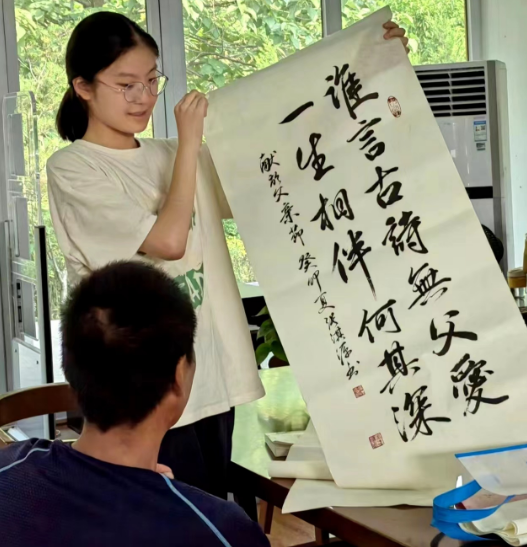 誰言古詩無父愛
一生相伴何其深
献於父亲節 癸卯夏